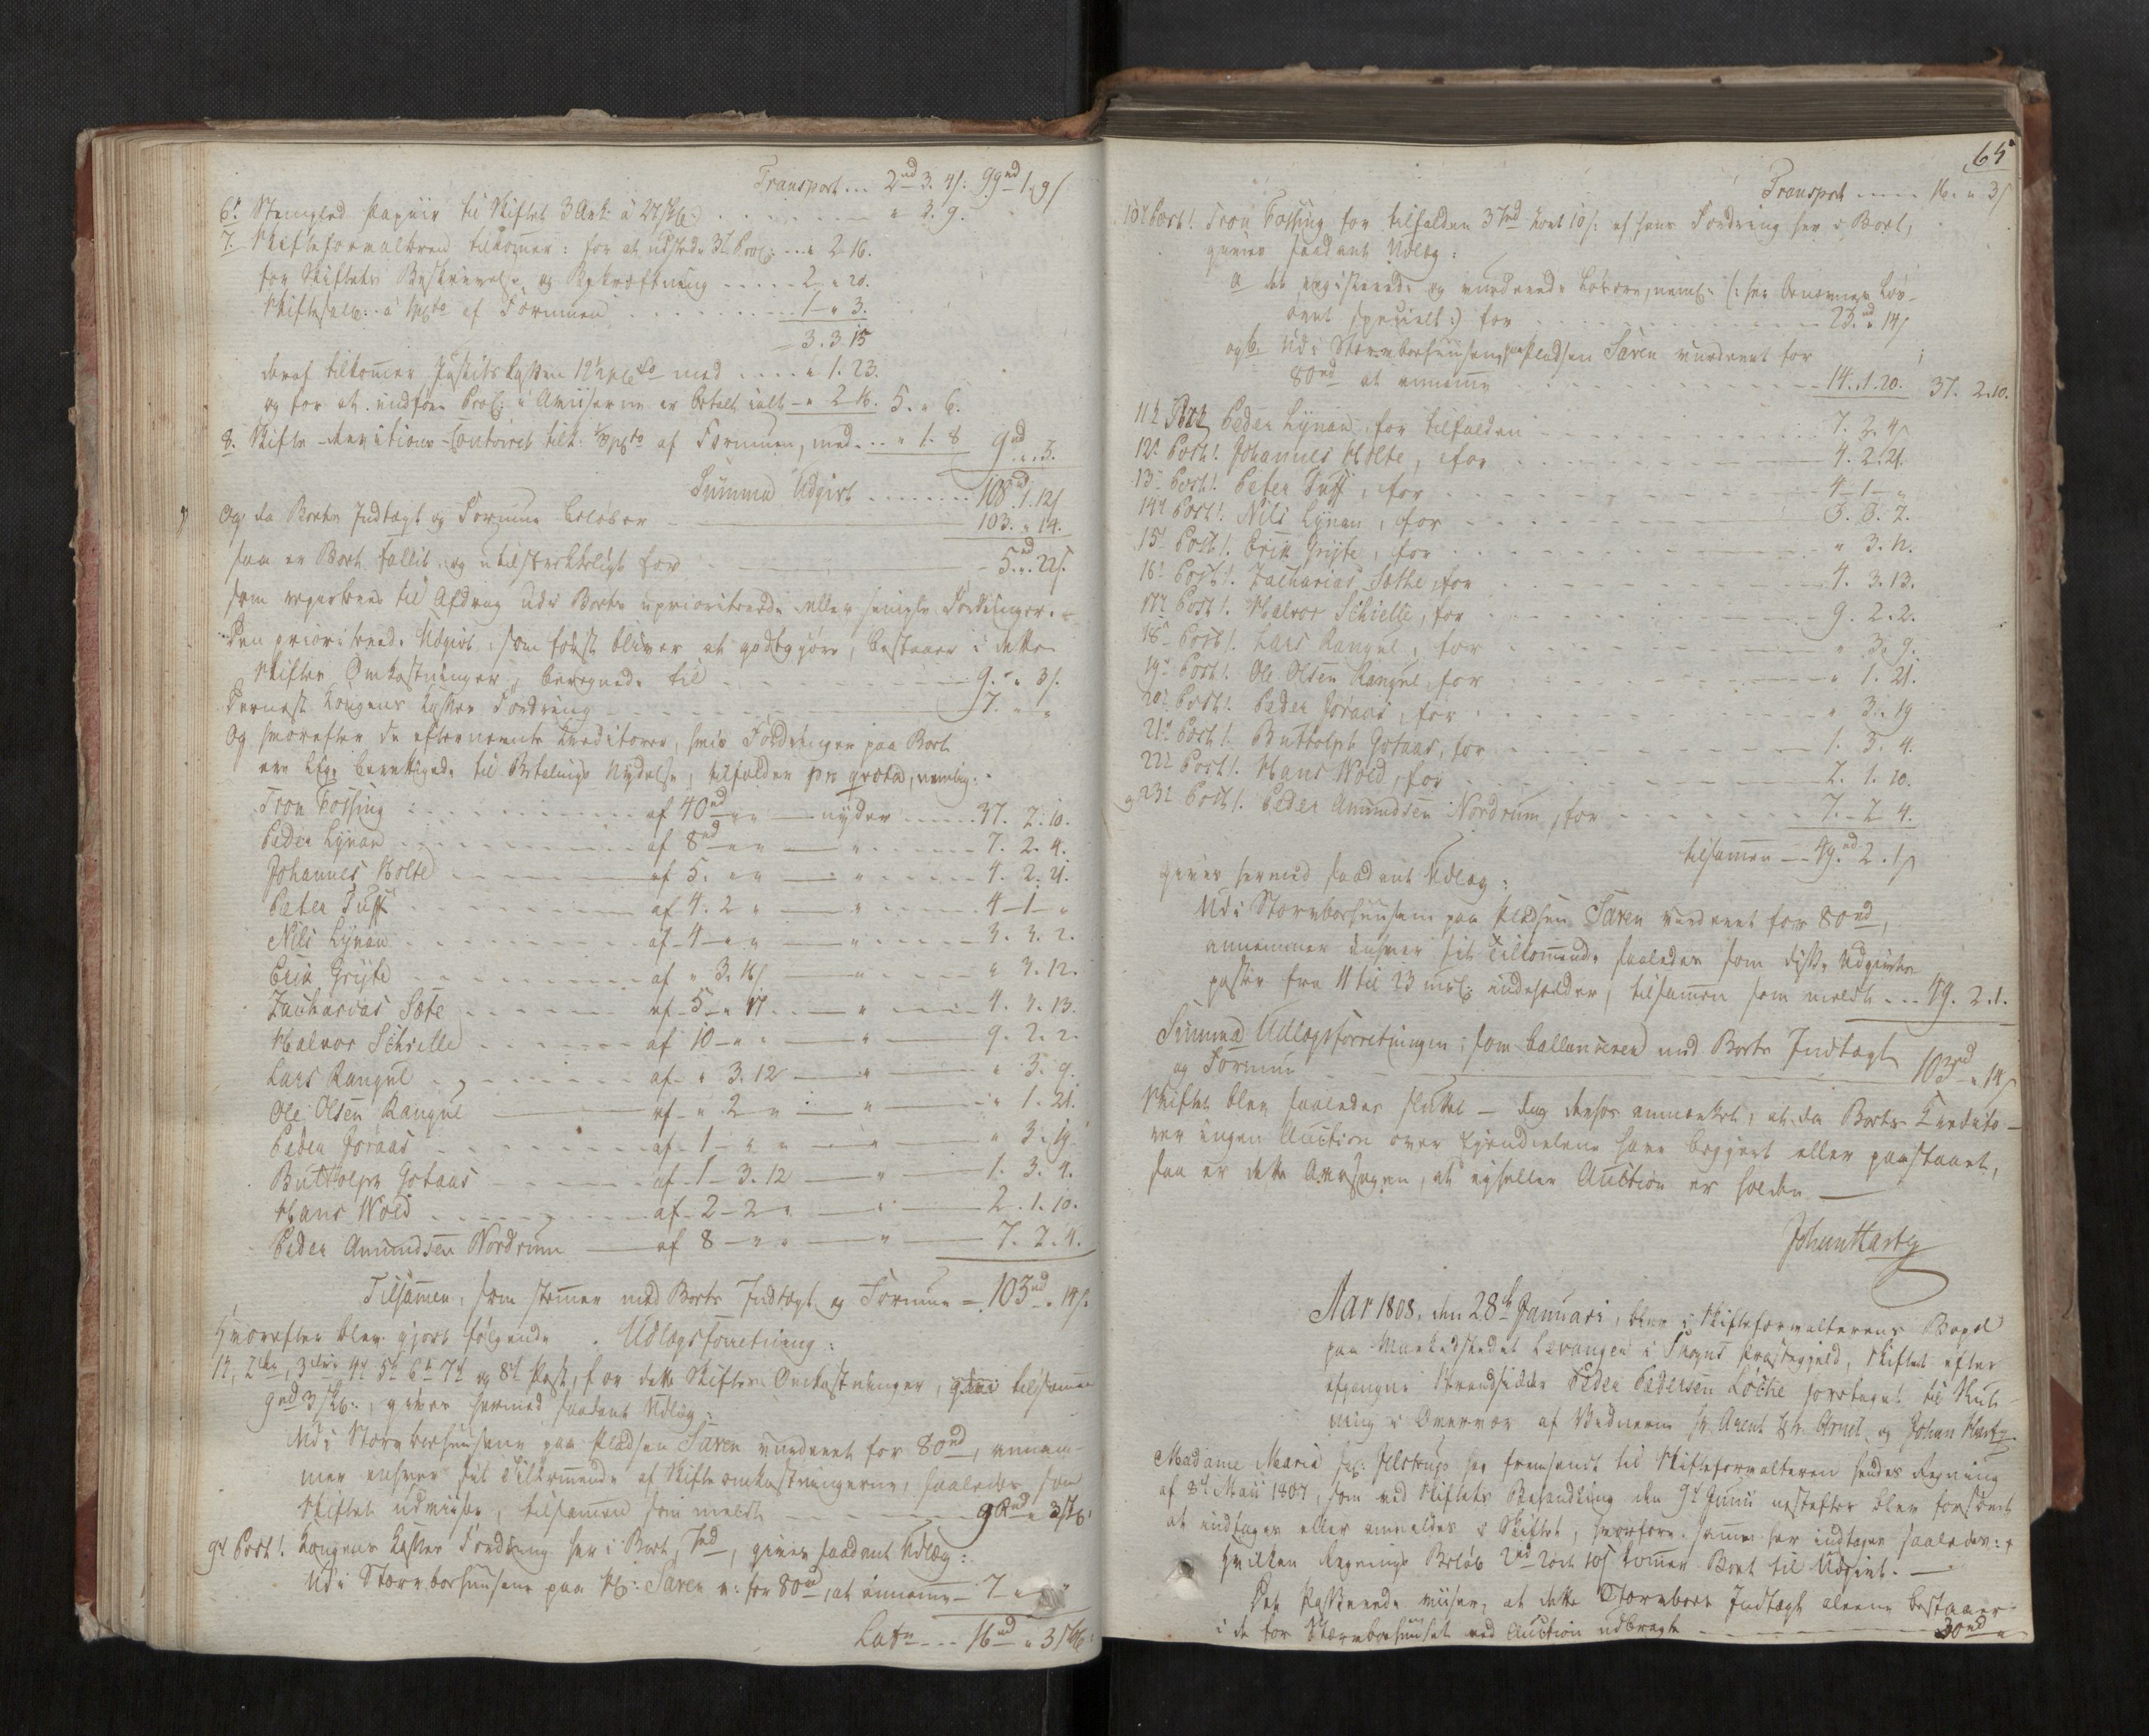 Transport ... 2rd 3. 4s. 99rd 1. 9s
6. Stempled Papiir til Skiftet 3 Ark: a 27 skl: . . . " 3. 9.
7. Skifteforvalteren tilkommer: for at udstede 3de Procl: . . . " 2. 16.
for Skiftets Beskrivelse og Bekræftning . . . . . 2 " 20.
Skiftesalr: a 1 pCto af Formuen . . . . . 1 " 3.
3. 3. 15
deraf tilkommer Justits Kassen 12½ pCto med . . . . " 1. 23.
og for at indføre Procl: i Aviserne er betalt ialt " 2. 16. 5. " 6.
8. Skifte-Revitions-Contoiret tilk: ⅓ pCto af Formuen, med . . . " 1. 8 9rd " 3.
Summa Udgivt . . . . . . . 108rd 1. 12s
Og da Boets Indtægt og Formue beløber 103. " 14.
saa er Boet fallit og utilstrekkeligt for 5rd " 22s.
som regnskrues til Afdrag udi Boets uprioriterede eller simple Fordringer.
Den prioriterede Udgivt som først bliver at godtgjøre, bestaaer i dette
Skiftes Omkostninger, beregnede til 9. " 3s.
Dernest Kongens Kasses Fordring 7. " "
Og hvorefter de efternevnte Creditorer, hvis Fordringer paa Boet
ere lige berettigede til Betalings Nydelse, tilfalder pro qvota, nemlig:
Tron Fossing af 40rd " " nyder 37. 2. 10.
Peder Lynan af 8rd " " " 7. 2. 4.
Johannes Holte af 5. " " " 4. 2. 21.
Peter Tuff af 4. 2 " " 4 1 "
Nils Lynan af 4 " " " 3. 3. 2.
Erik Gryte af " 3. 16s " " 3. 12.
Zacharias Sæte af 5 " 17 " 4. 3. 13.
Halvor Schielle af 10 " " " 9. 2. 2.
Lars Rangul af " 3. 12 " " 3. 9.
Ole Olsen Rangul af " 2 " " " 1. 21.
Peder Joraas af 1 " " " " 3. 19.
Buttolph Gotaas af 1 3. 12 " 1. 3. 4.
Hans Wold af 2 2 " " 2. 1. 10.
Peder Amundsen Nordrum af 8 " " " 7. 2. 4.
Tilsammen, som stemmer med Boets Indtægt og Formue = 103rd " 14s.
Hvorefter blev gjort følgende Udlægsforretning:
1te, 2den, 3die 4de 5te 6te 7de og 8de Post, for dette Skiftes Omkostninger, tilsammen
9rd 3 skl:, gives hermed saadant Udlæg:
Udi Størvborhuusene paa Pladsen Saren vurderet for 80rd, annam-
mer enhver sit Tilkommende af Skifteomkostningerne, saaledes som
Skiftet udviiser, tilsammen som meldt 9rd " 3skl:
9de Post. Kongens Kasses Fordring her i Boet, 7rd, gives saadant Udlæg:
Udi Størvborhuusene paa Pl: Saren v: for 80rd, at annamme 7 " "
Lats ... 16rd " 3skl:
65
Transport ..... 16. " 3s
10de Post. Tron Fossing for tilfalden 37rd 2ort 10s. af hans Fordring her i Boet,
gives saadant Udlæg:
a de registrerede og vurderede Løsøre, neml: (: her benævnes Løs-
øret specielt :) for 23rd " 14s
og b. Udi Størvborhuusene paa Pladsen Saren vurderet for
80rd at annamme 14. 1. 20. 37. 2. 10.
11te Post Peder Lynan for tilfalden 7. 2. 4s
12te Post. Johannes Holte, for 4. 2. 21.
13de Post. Peter Tuff, for 4 1 "
14de Post. Nils Lynan, for 3. 3. 2.
15de Post. Erik Gryte, for " 3. 12.
16de Post. Zacharias Sæthe, for 4. 3. 13.
17de Post. Halvor Schielle, for 9. 2. 2.
18de Post. Lars Rangul, for " 3. 9.
19de Post. Ole Olsen Rangul, for " 1. 21.
20de Post. Peder Joraas, for " 3. 19
21de Post. Buttolph Gotaas, for 1. 3. 4.
22de Post. Hans Wold, for 2. 1. 10.
og 23de Post. Peder Amundsen Nordrum, for 7. 2 4.
tilsammen 49rd 2. 1s
gives hermed saadant Udlæg:
Udi Størvborhuusene paa Pladsen Saren vurderet for 80rd,
annammer enhver sit Tilkommende saaledes som disse Udgivts
poster fra 11 til 23 incl: indeholder, tilsammen som meldt . . . 49. 2. 1.
Summa Udlægsforretningen, som ballancerer med Boets Indtægt
og Formue 103rd " 14s
Skiftet blev saaledes sluttet — dog derhos anmærket, at da Boets Credito-
rer ingen Auction over Ejendelene have begjert eller paastaaet,
saa er dette Aarsagen, at ej heller Auction er holden —
Johan Hartz
Aar 1808, den 28de Januari, blev i Skifteforvalterens Bopæl
paa Markedstedet Levanger i Skogns Præstegjeld, Skiftet efter
afgangne Strandsidder Peder Pedersen Løche foretaget til Slut-
ning i Overvær af Vidnerne Hr Arent Arnet og Johan Hartz.
Madame Maria sal: Jelstrups har fremsendt til Skifteforvalteren hendes Regning
af 8de Maii 1807, som ved Skiftets Behandling den 9de Junii nestefter blev forsømt
at indtages eller anmeldes i Skiftet, hvorfore samme her indtages saaledes: +
Hvilken Regnings Beløb 2rd 2ort 10s kommer Boet til Udgivt. —
Det Passerede viiser, at dette Størvboes Indtægt aleene bestaaer
i de for Størvborhuuset ved Auction udbragte 30rd "